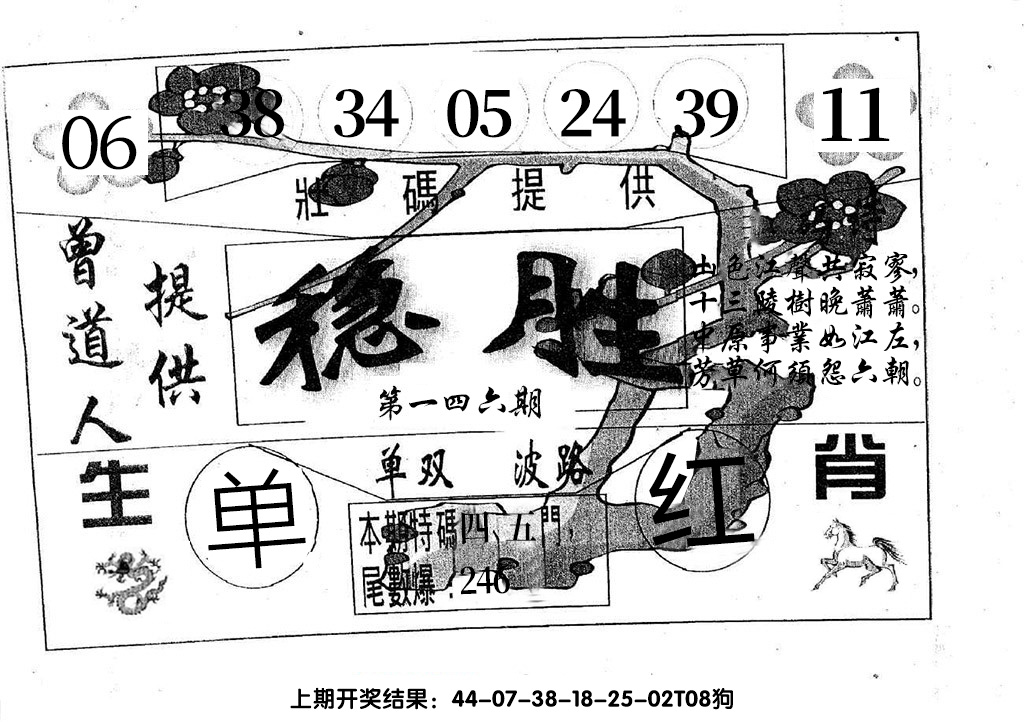 06 38 34 05 24 39 11
壯碼提供
曾道人
提供
穩胜
第一四六期
山色江聲共寂寥，
十三陵樹晚蕭蕭。
中原事業如江左，
芳草何須怨六朝。
单双 波路
生肖
单
红
本期特碼四、五門，
尾數爆：246
上期开奖结果：44-07-38-18-25-02T08狗